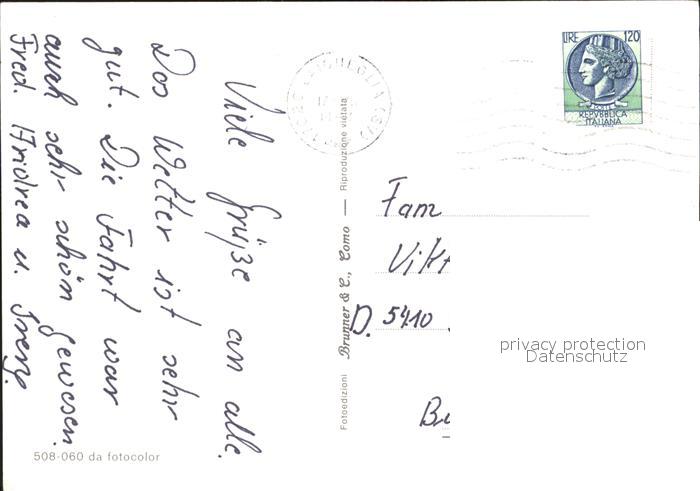 Viele Grüße an alle.
Das Wetter ist sehr
gut. Die Fahrt war
auch sehr schön gewesen.
Fred. Andrea u. Irene.
LIRE 120
POSTE
REPVBBLICA
ITALIANA
Fotoedizioni Brunner & C., Como — Riproduzione vietata
Fam
D. 5410
privacy protection
Datenschutz
508-060 da fotocolor